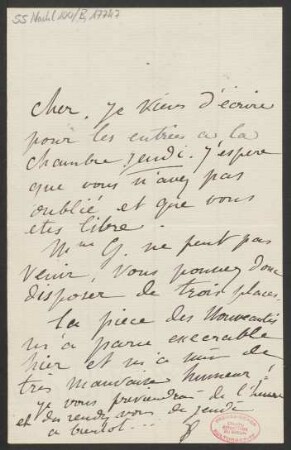 cher, je viens d'écrire
pour les entrées a la
chambre, jeudi. J'espere
que vous n'avez pas
oublié et que vous
etes libre.
Mme G. ne peut pas
venir, vous pouvez donc
disposer de trois places.
La piece des Nouveautés
m'a paru execrable
hier et m'a mis de
tres mauvaise humeur!
je vous previendrai de l'heure
et du rendez vous de jeudi
a bientot...